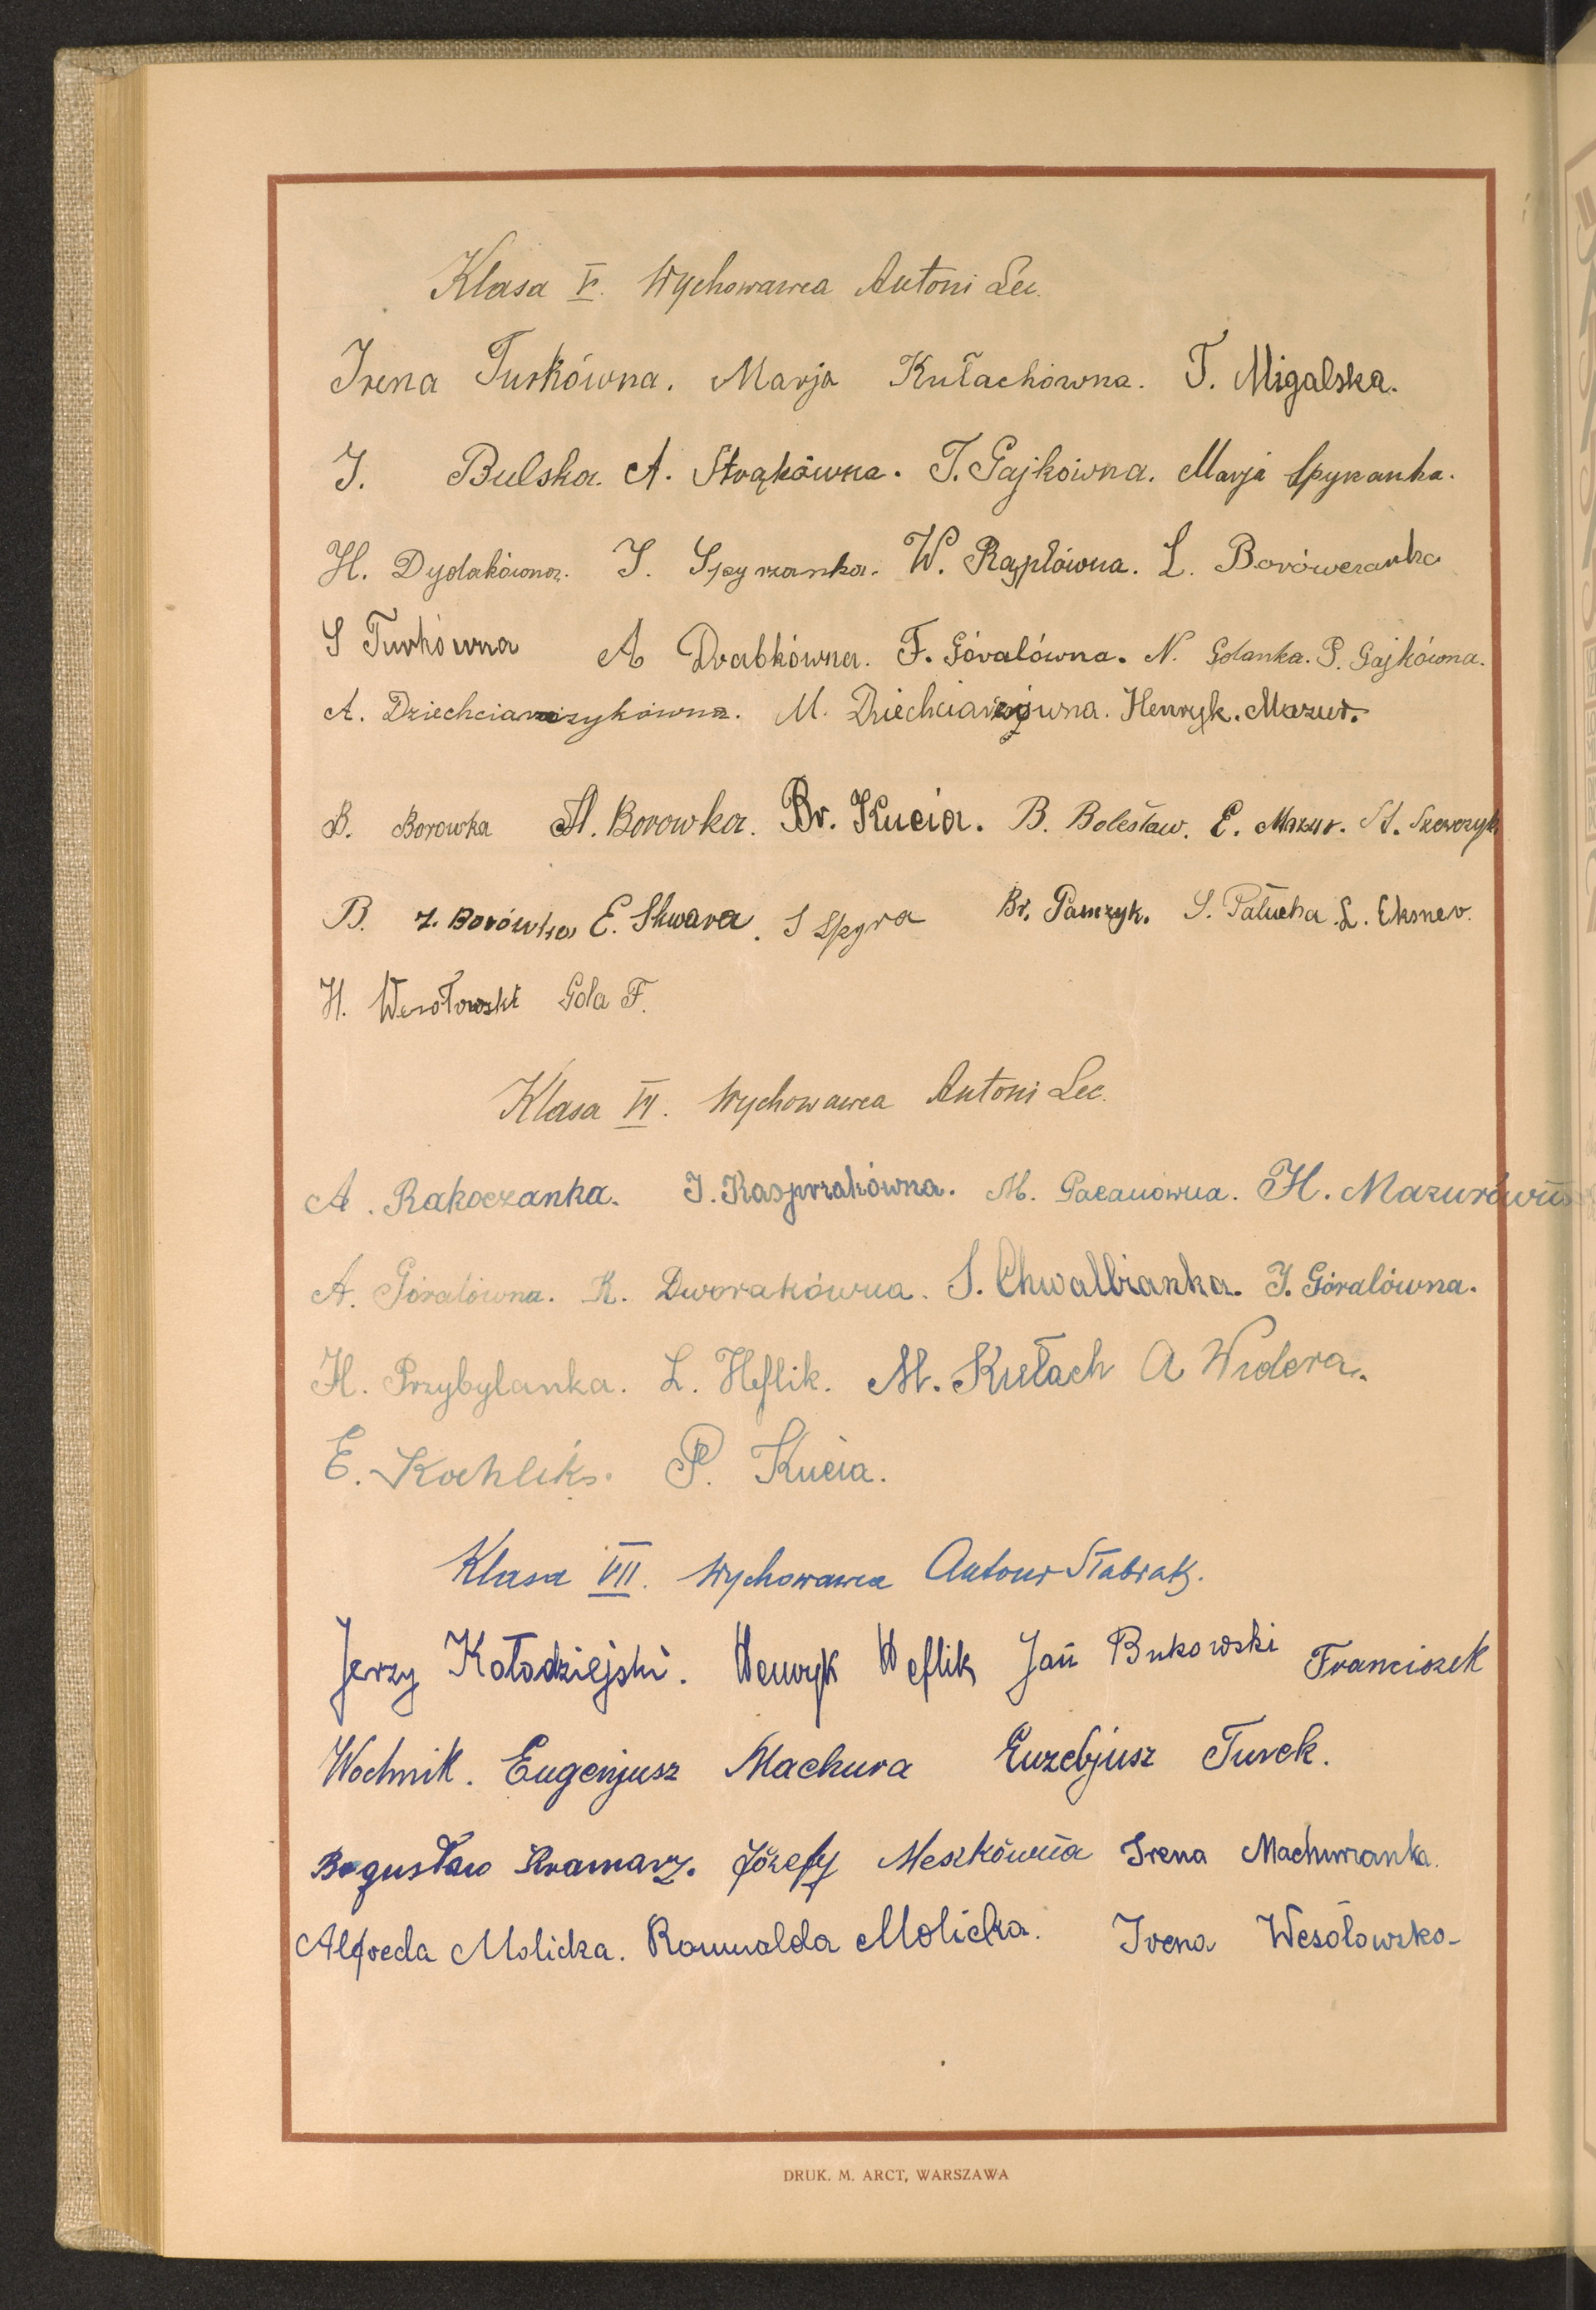 Klasa V. Wychowawca Antoni Lec.
Irena Turkówna. Marja Kułachówna. T. Migalska.
J. Bulska. A. Strąkówna. T. Gajkówna. Marja Spyranka.
H. Dydakówna. J. Spyrzanka. W. Raplówna. L. Borówczanka
S Turkówna A Drabkówna. F. Góralówna. N. Golanka. P. Gajkówna.
A. M. Henryk. Mazur.
B. Borowka A. Borowka. Br. Kucia. B. Bolesław. E. Mazur. St. Szewczyk
B. Z. Borówka E. Skwara. S Spyra Br. Panczyk. S. Pałucha. L. Eksner.
H. Wesołowski Gola F.
Klasa VI. Wychowawca Antoni Lec.
A. Rakoczanka. J. Kasprzakówna. M. Pacanówna. H. Mazurówn
A. Góralówna. K. Dworakówna. S. Chwalbianka. J. Góralówna.
H. Przybylanka. L. Heflik. M. Kułach A Widera.
E. Kochlik. P. Kucia.
Klasa VII. Wychowawca Antoni Stabrak.
Jerzy Kołodziejski. Henryk Heflik Jan Bukowski Franciszek
Wochnik. Eugenjusz Machura Euzebjusz Turek.
Bogusław Kramarz. Meszkówna Irena Machurzanka.
Alfreda Molicka. Romualda Molicka. Irena Wesołowska
DRUK. M. ARCT, WARSZAWA